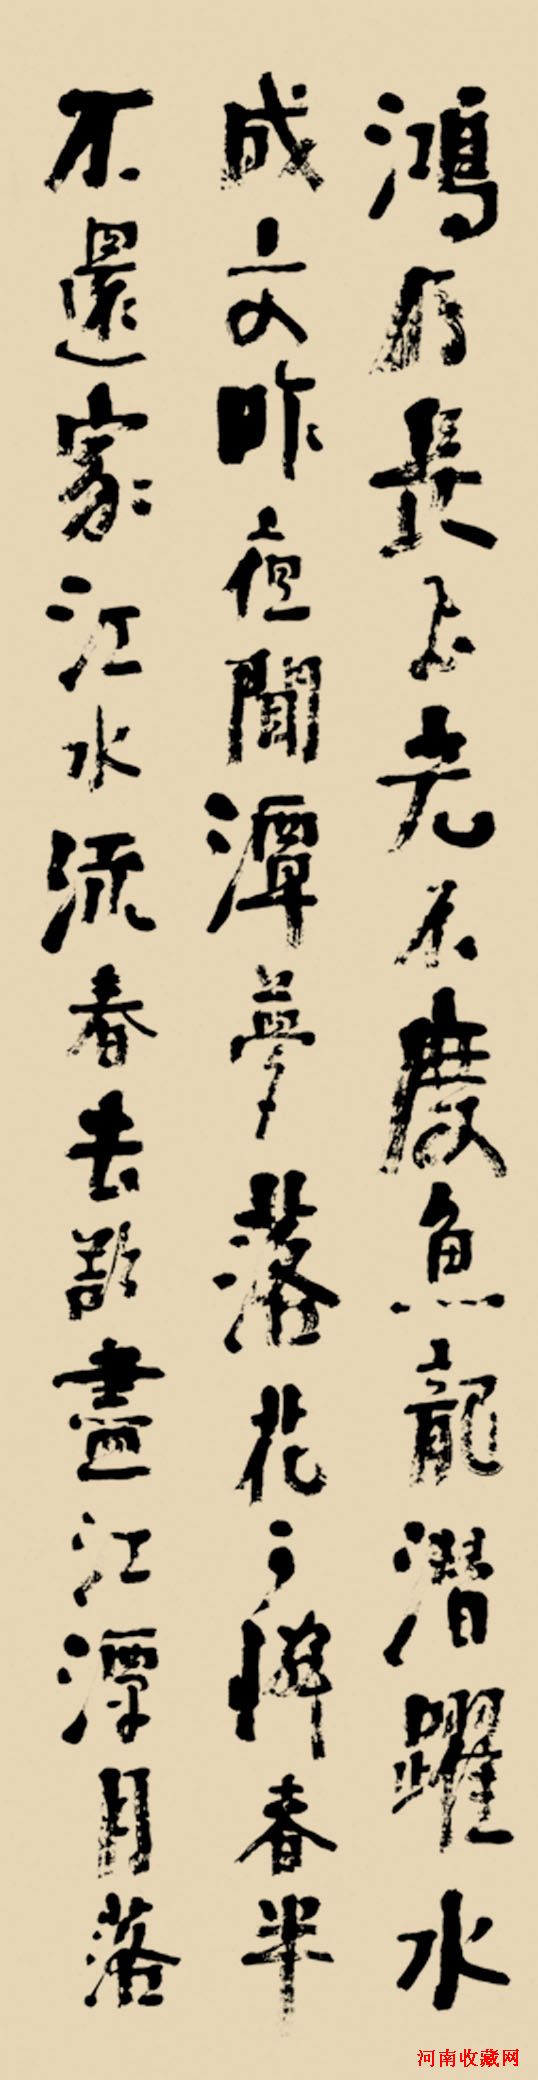 鴻雁長飛光不度魚龍潛躍水
成文昨夜閒潭夢落花可憐春半
不還家江水流春去欲盡江潭月落
河南收藏网